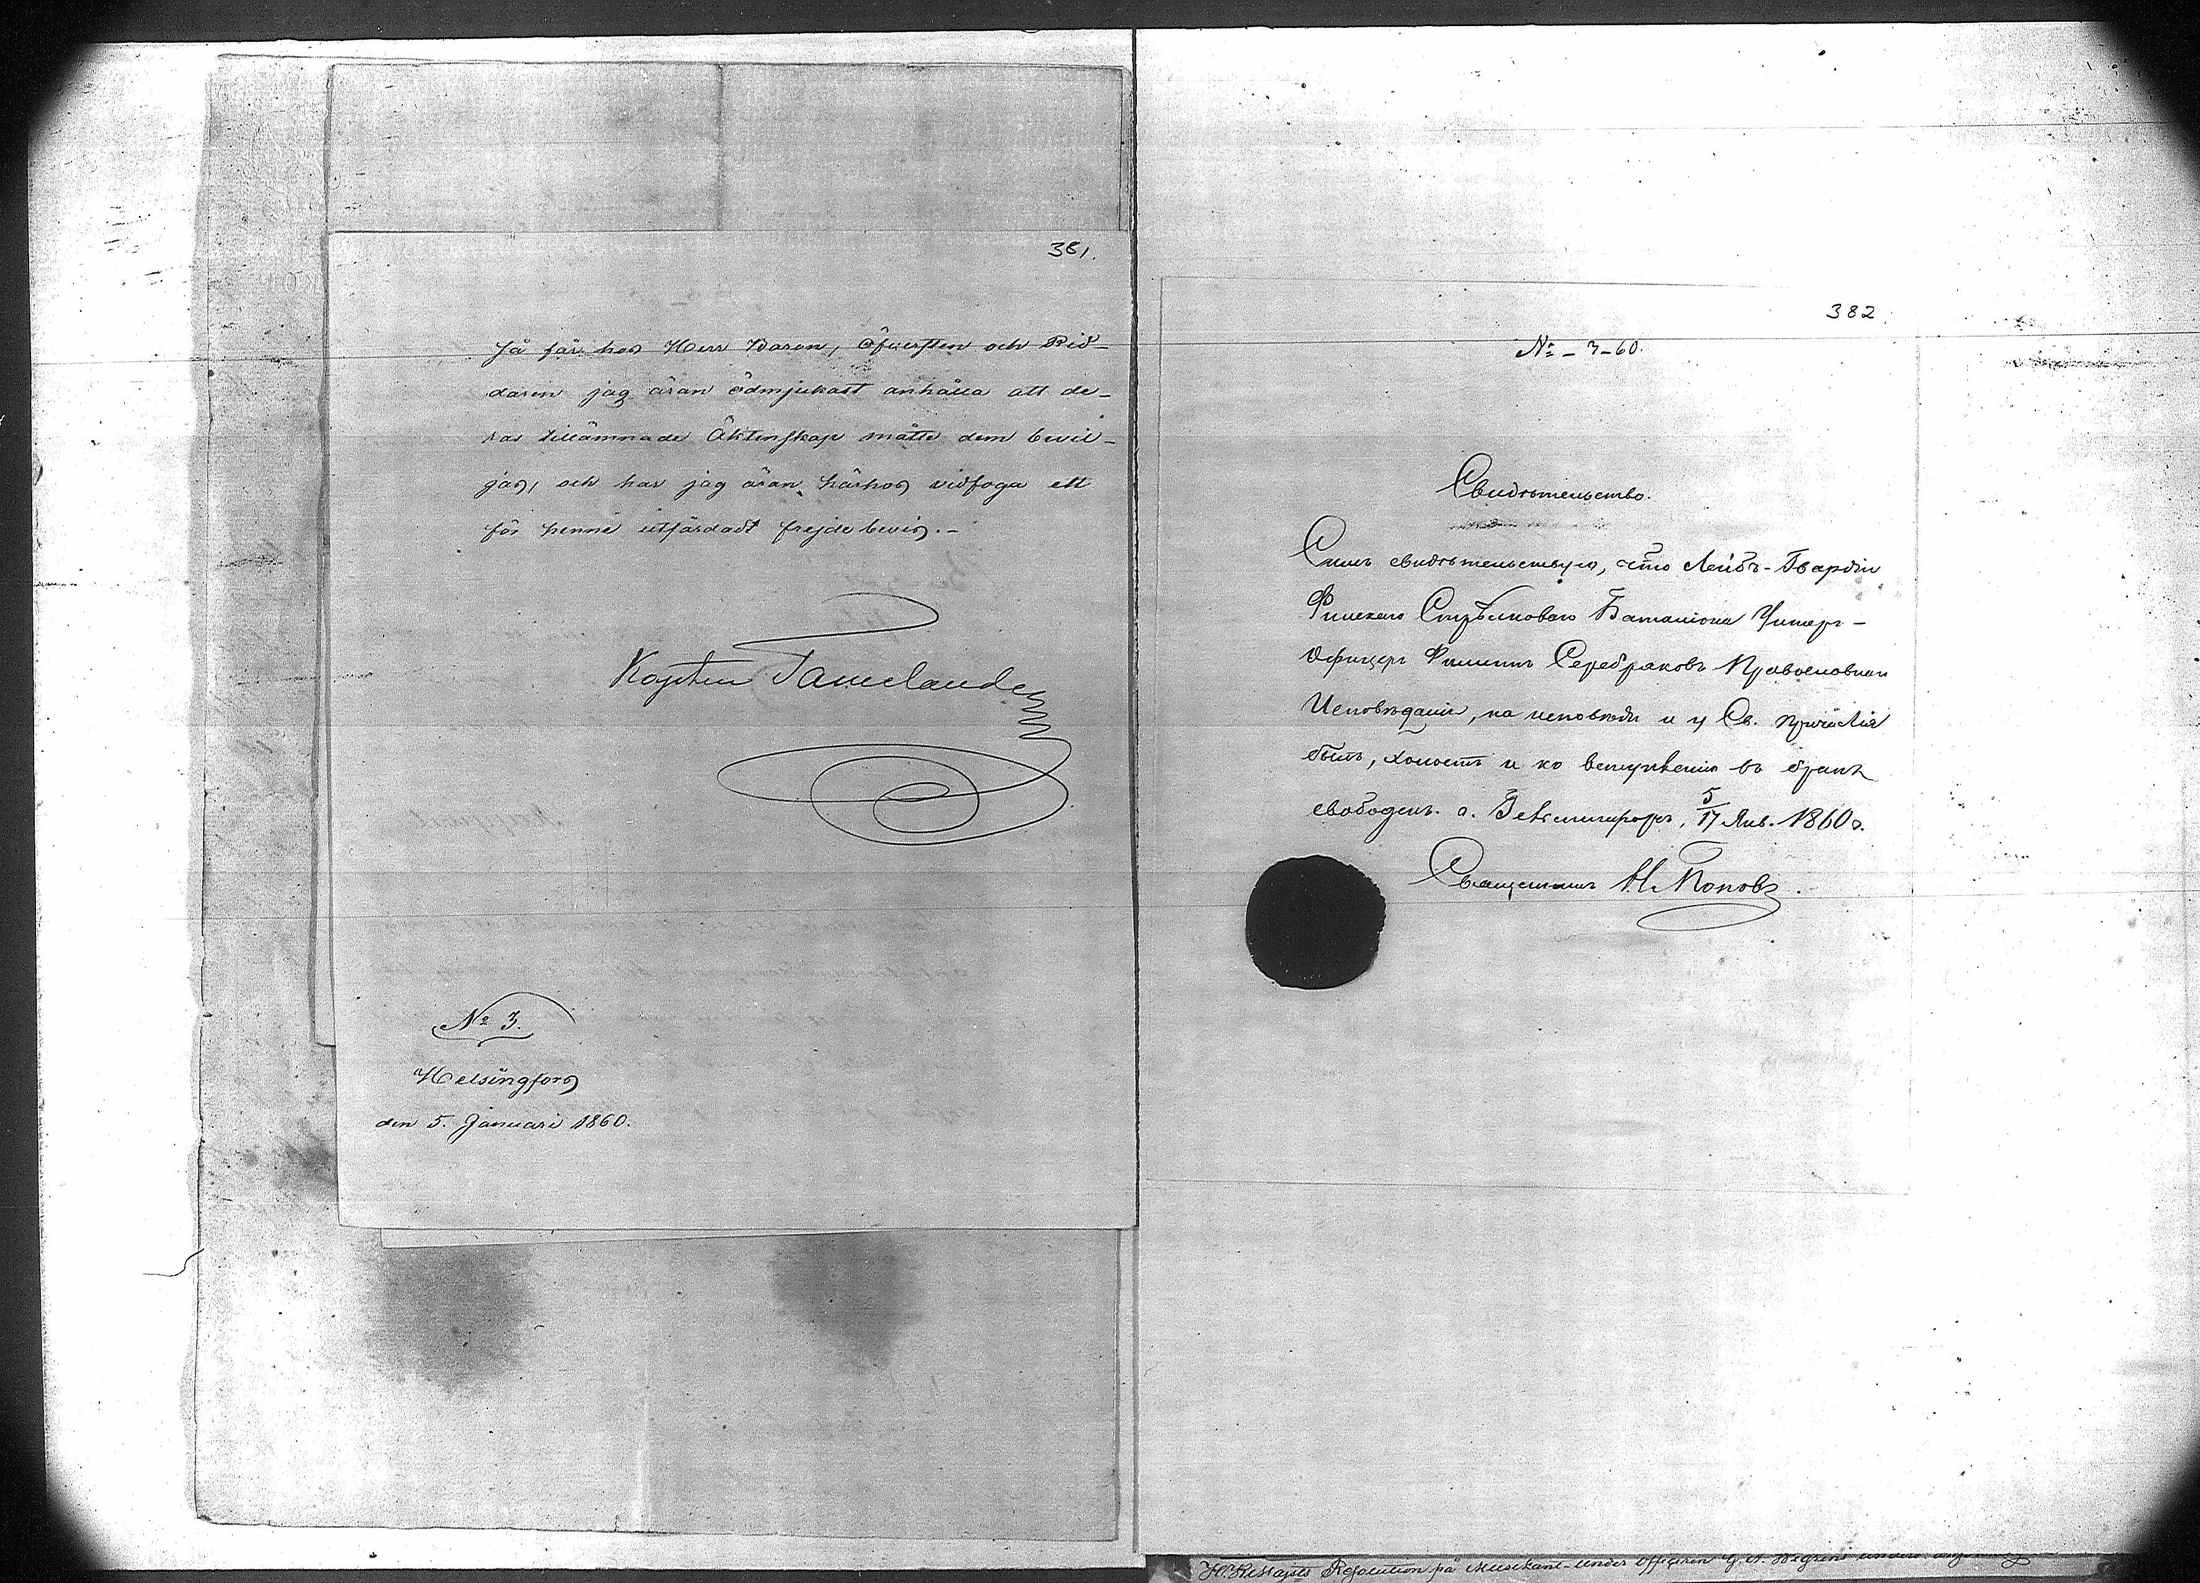 381.
Så får hos Herr Baron, Öfversten och Rid-
daren jag äran ödmjukast anhålla att de-
ras tillämnade Äktenskap måtte dem bevil-
jas, och har jag äran härhos vidfoga ett
för henne utfärdadt frejdebevis.-
Kapten Tamelander
No 3.
Helsingfors
den 5. Januari 1860.
382
No - 3-60.
Свидѣтельство.
Симъ свидѣтельствую, что Лейбъ-Гвардіи
Финскаго Стрѣлковаго Баталіона Унтеръ-
Офицеръ Филиппъ Серебряковъ Православнаго
Исповѣданія, на исповѣди и у Св. причастія
былъ, холостъ и ко вступленію въ бракъ
свободенъ. г. Гельсингфорсъ, 5/17 Янв. 1860 г.
Священникъ Н. Поповъ.
Resolution på Musikant-Under Officeren G. A.